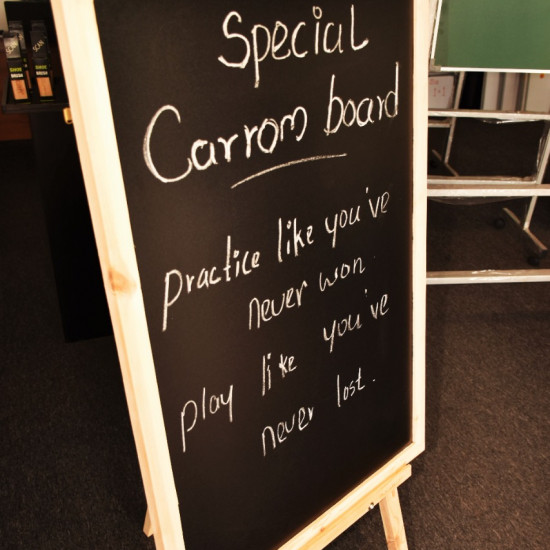 Special
Carrom board
Practice like you've
never won.
play like you've
never lost.